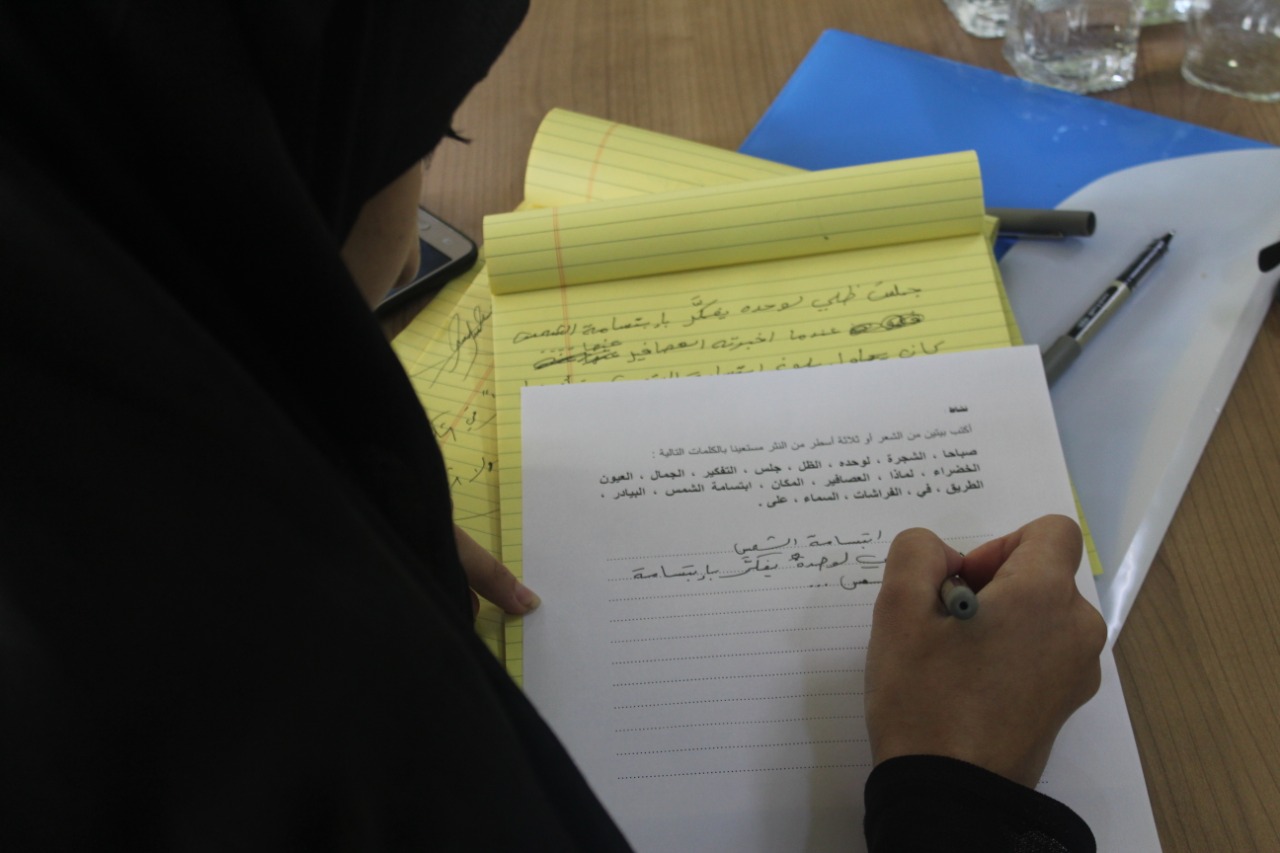 جلست ظلي لوحده يفكّر بابتسامة الشمس
عندما اخبرته العصافير عنها
كان يحاول
نشاط
أكتب بيتين من الشعر أو ثلاثة أسطر من النثر مستعينا بالكلمات التالية :
صباحا ، الشجرة ، لوحده ، الظل ، جلس ، التفكير ، الجمال ، العيون
الخضراء ، لماذا ، العصافير ، المكان ، ابتسامة الشمس ، البيادر ،
الطريق ، في ، الفراشات ، السماء ، على .
ابتسامة الشمس
لوحده يفكّر بابتسامة
...